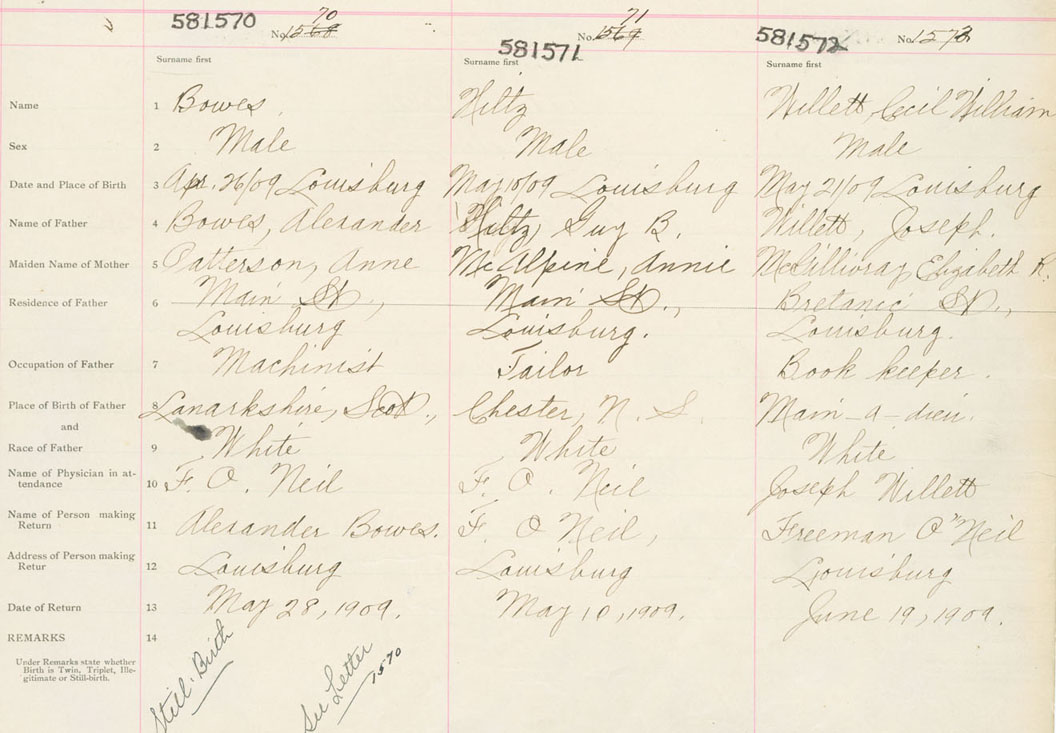 581570 No. 1568 70 581571 No. 1569 71 581572 No. 1573
Surname first Surname first Surname first
Name 1 Bowes Hiltz Willett, Cecil William
Sex 2 Male Male Male
Date and Place of Birth 3 Apr. 26/09 Louisburg May 10/09 Louisburg May 21/09 Louisburg
Name of Father 4 Bowes, Alexander Hiltz, Guy B. Willett, Joseph.
Maiden Name of Mother 5 Patterson, Anne McAlpine, Annie McGillivray, Elizabeth R.
Residence of Father 6 Main St., Main St., Bretanic St.,
Louisburg Louisburg. Louisburg.
Occupation of Father 7 Machinist Tailor Book keeper.
Place of Birth of Father 8 Lanarkshire, Scot., Chester, N. S. Main-a-dieu.
and
Race of Father 9 White White White
Name of Physician in at-
tendance 10 F. O. Neil F. O. Neil Joseph Willett
Name of Person making
Return 11 Alexander Bowes. F. O Neil, Freeman O"Neil
Address of Person making
Retur 12 Louisburg Louisburg Louisburg
Date of Return 13 May 28, 1909. May 10, 1909. June 19, 1909.
REMARKS 14
Under Remarks state whether
Birth is Twin, Triplet, Ille-
gitimate or Still-birth.
Still-Birth
See Letter 1570